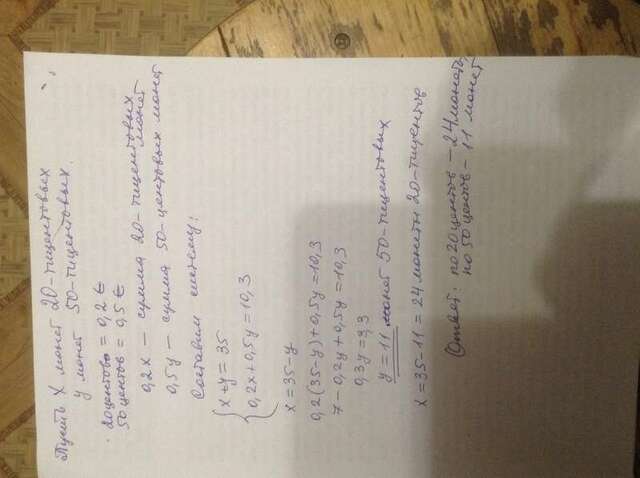 Пусть X монет 20-тицентовых
y монет 50-тицентовых.
20центов = 0,2 €
50 центов = 0,5 €
0,2x — сумма 20-тицентовых монет
0,5y — сумма 50-центовых монет
Составим систему:
x+y = 35
0,2x+0,5y = 10,3
x = 35-y
0,2(35-y)+0,5y = 10,3
7-0,2y+0,5y = 10,3
0,3y = 3,3
y = 11 монет 50-тицентовых
x = 35-11 = 24 монеты 20-тицентов
Ответ: по 20 центов — 24 монеты,
по 50 центов — 11 монет